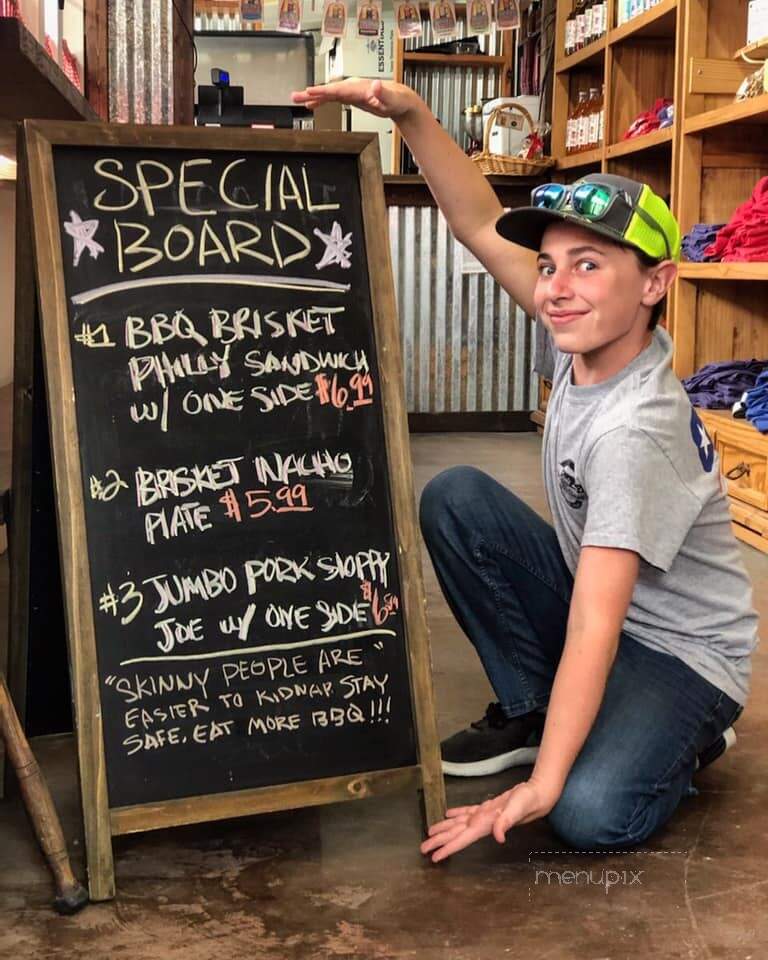 SPECIAL
BOARD
#1 BBQ BRISKET
PHILLY SANDWICH
W/ ONE SIDE $6.99
#2 BRISKET NACHO
PLATE $5.99
#3 JUMBO PORK SLOPPY
JOE W/ ONE SIDE $6.99
"SKINNY PEOPLE ARE"
EASIER TO KIDNAP. STAY
SAFE. EAT MORE BBQ!!!
menupix